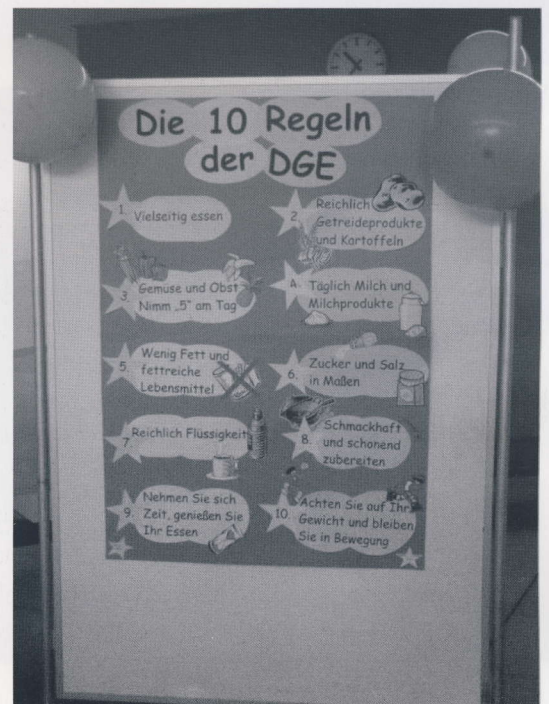 Die 10 Regeln
der DGE
1. Vielseitig essen
2. Reichlich
Getreideprodukte
und Kartoffeln
3. Gemüse und Obst
Nimm „5" am Tag
4. Täglich Milch und
Milchprodukte
5. Wenig Fett und
fettreiche
Lebensmittel
6. Zucker und Salz
in Maßen
7. Reichlich Flüssigkeit
8. Schmackhaft
und schonend
zubereiten
9. Nehmen Sie sich
Zeit, genießen Sie
Ihr Essen
10. Achten Sie auf Ihr
Gewicht und bleiben
Sie in Bewegung